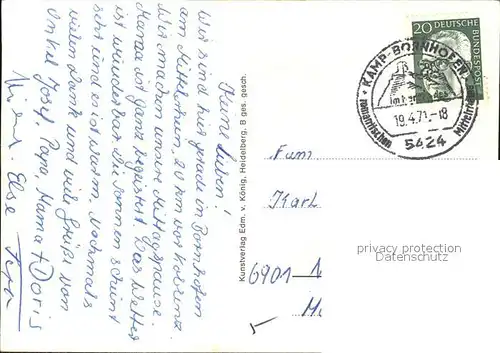 Ihr Lieben!
Wir sind hier grade in Bornhofen
am Mittelrhein, 20 km vor Koblenz.
Wir machen unsere Mittagspause.
Mama ist ganz begeistert. Das Wetter
ist wunderbar die Sonne scheint
sehr und es ist warm. Nochmals
vielen Dank und viele Grüße von
Onkel Josef, Papa, Mama + Doris
Else
Kunstverlag Edm. v. König, Heidelberg, B ges. gesch.
20 DEUTSCHE
BUNDESPOST
KAMP-BORNHOFEN
romantischen
Mittelrhein
19.4.71-18
5424
Fam
Karl
6901
privacy protection
Datenschutz